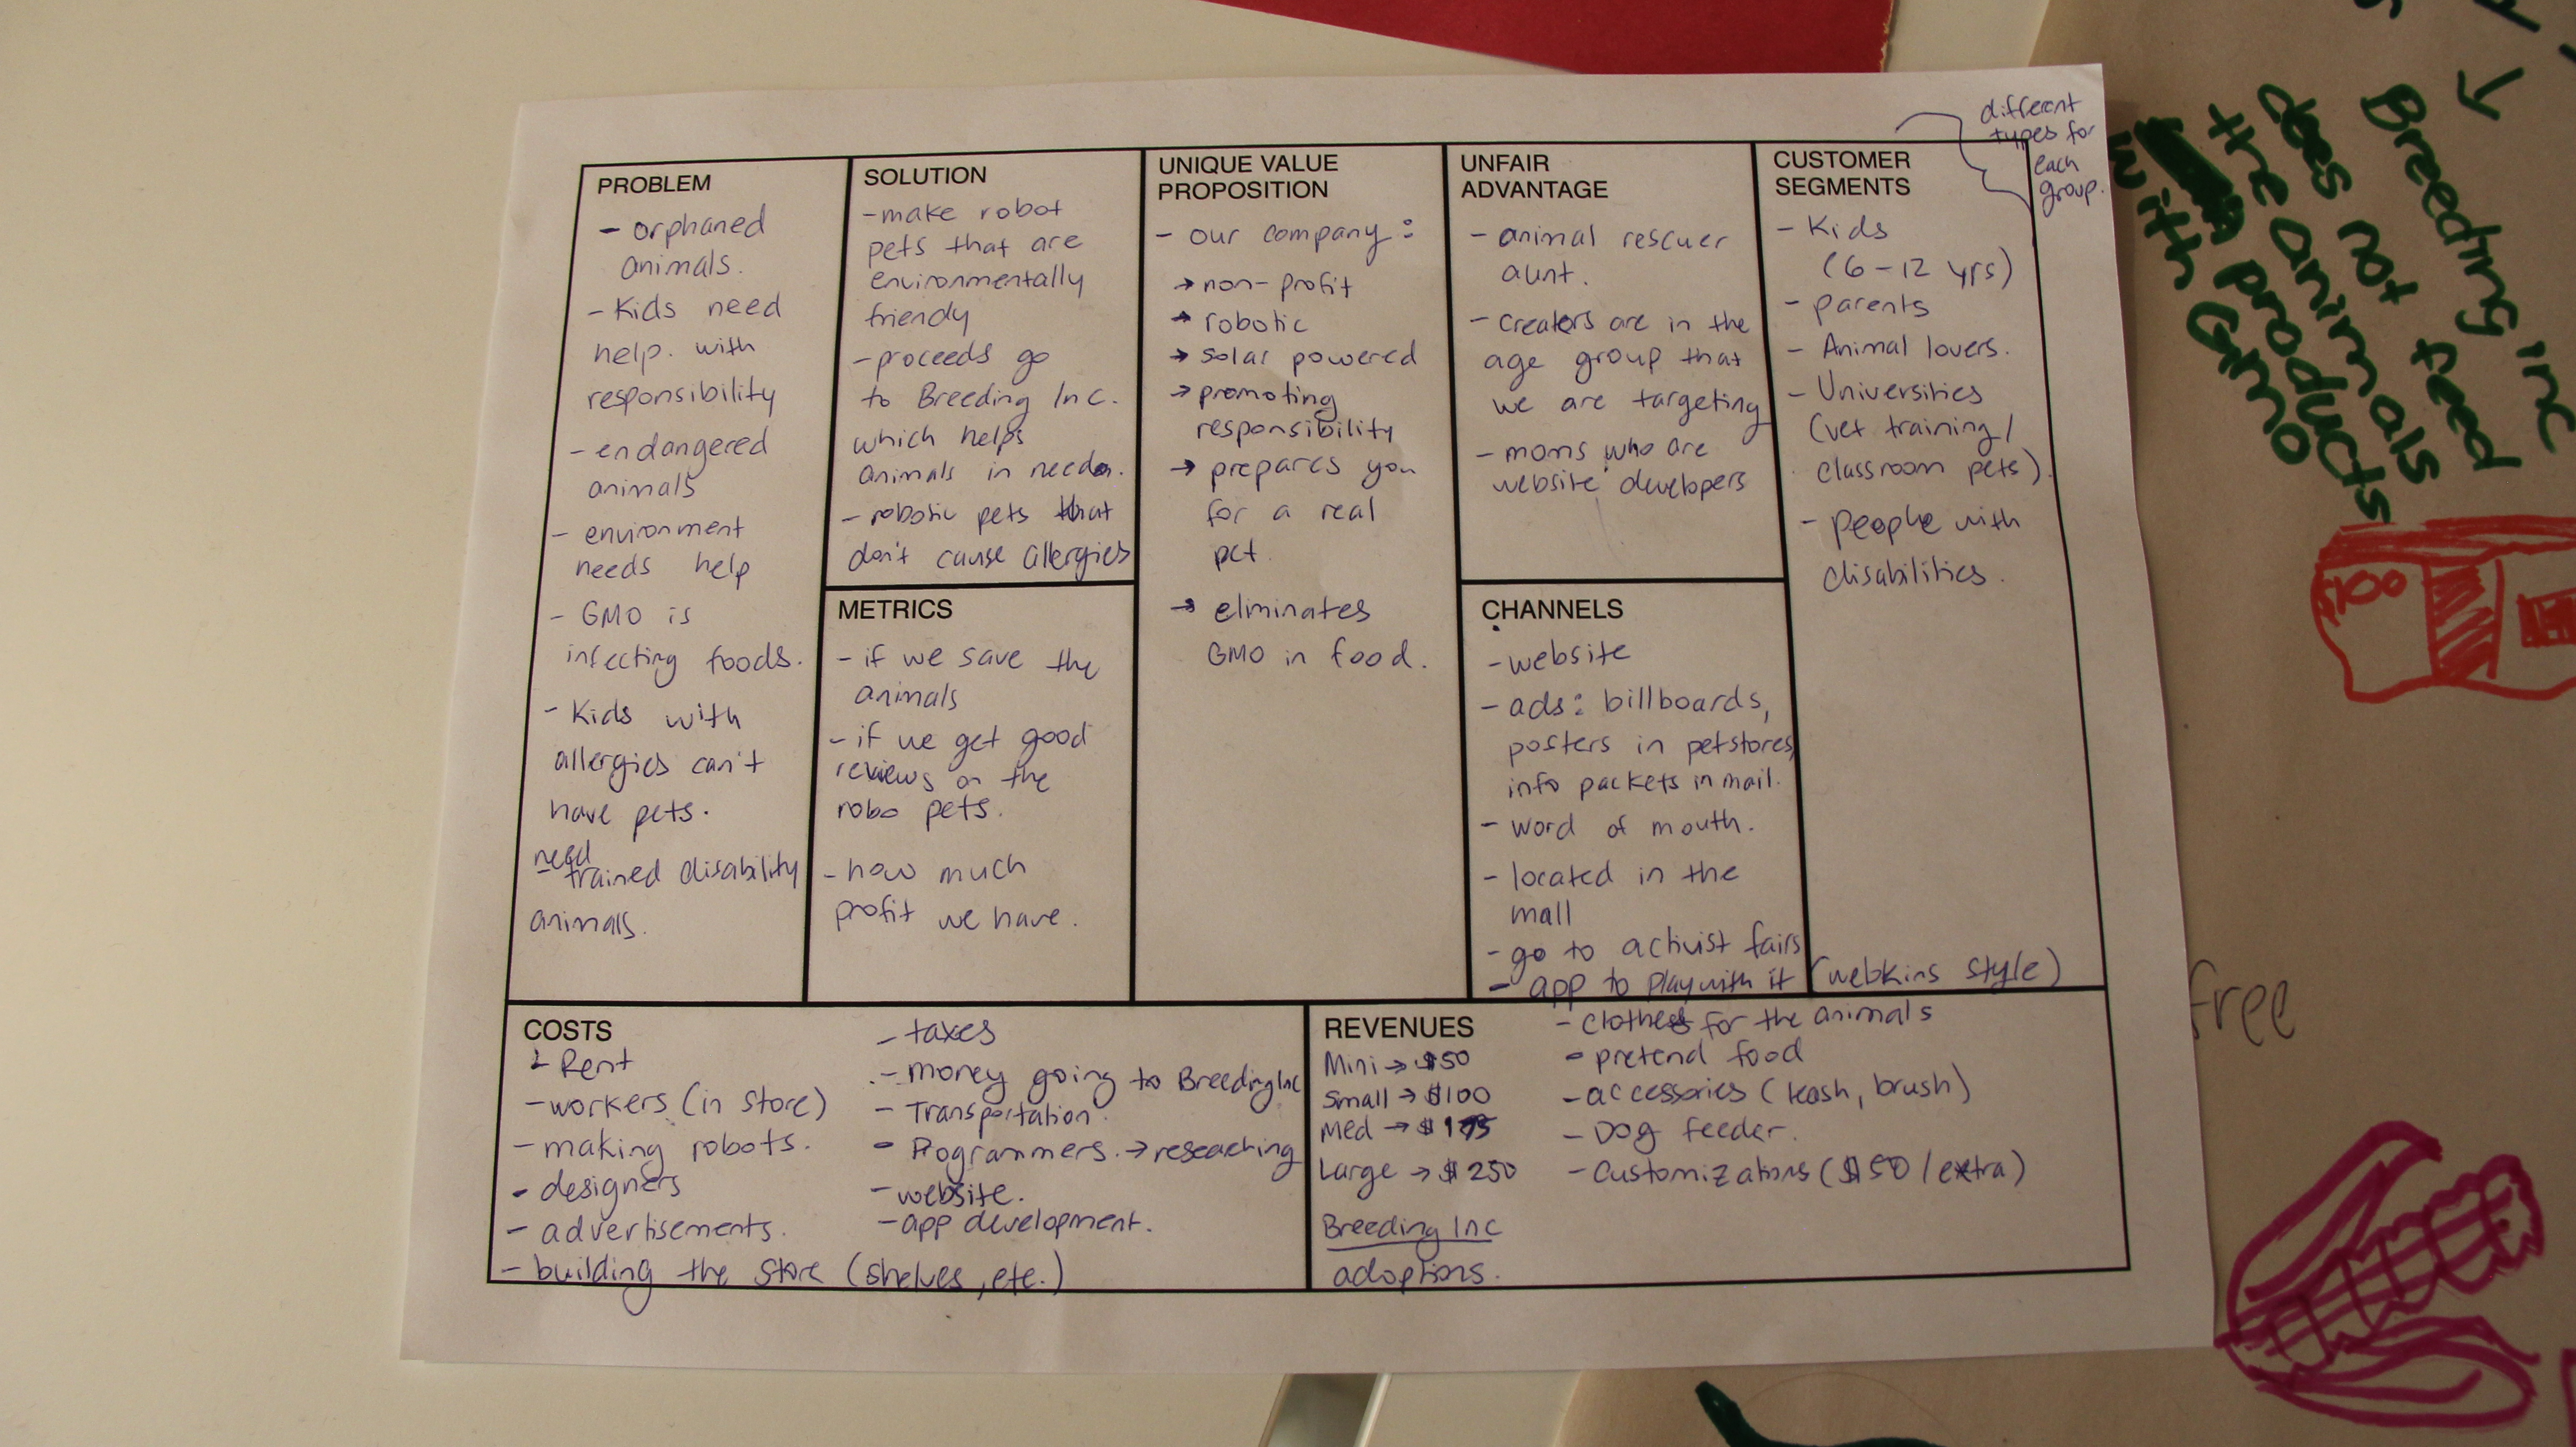 PROBLEM
- orphaned
animals.
- Kids need
help. with
responsibility
- endangered
animals
- environment
needs help
- GMO is
infecting foods.
- Kids with
allergies can't
have pets.
need
- trained disability
animals.
SOLUTION
- make robot
pets that are
environmentally
friendy
- proceeds go
to Breeding Inc.
which helps
animals in need.
- robotic pets that
don't cause allergies
METRICS
- if we save the
animals
- if we get good
reviews on the
robo pets.
- how much
profit we have.
UNIQUE VALUE
PROPOSITION
- our company:
→ non-profit
→ robotic
→ solar powered
→ promoting
responsibility
→ prepares you
for a real
pet.
→ eliminates
GMO in food.
UNFAIR
ADVANTAGE
- animal rescuer
aunt.
- creators are in the
age group that
we are targeting
- moms who are
website developers
CHANNELS
- website
- ads: billboards,
posters in petstores,
info packets in mail.
- word of mouth.
- located in the
mall
- go to activist fairs
- app to play with it (webkins style)
CUSTOMER
SEGMENTS
different
types for
each
group.
- Kids
(6-12 yrs)
- parents
- Animal lovers.
- Universities
(vet training/
classroom pets).
- people with
disabilities.
COSTS
- Rent
- workers (in store)
- making robots.
- designers
- advertisements.
- building the store (shelves, etc.)
- taxes
- money going to Breeding Inc
- Transportation.
- Programmers. → reseaching
- website.
- app development.
REVENUES
Mini → $50
Small → $100
Med → $175
Large → $250
Breeding Inc
adoptions.
- clothes for the animals
- pretend food
- accessories (leash, brush)
- Dog feeder.
- Customizations ($50/extra)
Breeding Inc
does not feed
the animals
products
with GMO
$100
free